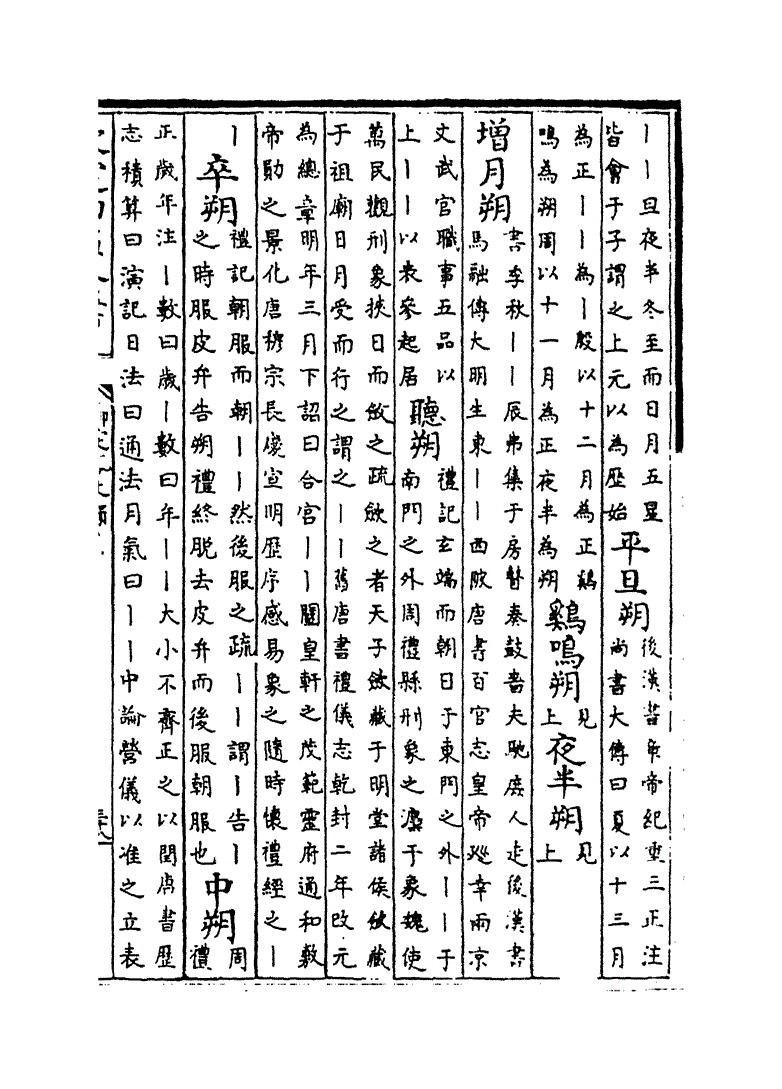 丨丨旦夜半冬至而日月五星
皆會于子謂之上元以為歷始
平旦朔
後漢書章帝紀重三正注
尚書大傳曰夏以十三月
為正丨丨為丨殷以十二月為正鷄
鳴為朔周以十一月為正夜半為朔
鷄鳴朔
見上
夜半朔
見上
增月朔
書季秋丨丨辰弗集于房瞽奏鼓嗇夫馳庶人走後漢書
馬融傳大明生東丨丨西陂唐書百官志皇帝廵幸兩凉
文武官職事五品以
上丨丨以表參起居
聽朔
禮記玄端而朝日于東門之外丨丨于
南門之外周禮縣刑象之灋于象魏使
萬民觀刑象挾日而斂之疏斂之者天子斂藏于明堂諸侯斂藏
于祖廟日月受而行之謂之丨丨舊唐書禮儀志乾封二年改元
為總章明年三月下詔曰合宮丨丨闡皇軒之茂範靈府通和敷
帝勛之景化唐穆宗長慶宣明歷序感易象之隨時懷禮經之丨
丨
卒朔
禮記朝服而朝丨丨然後服之疏丨丨謂丨告丨
之時服皮弁告朔禮終脫去皮弁而後服朝服也
中朔
周
禮
正歲年注丨數曰歲丨數曰年丨丨大小不齊正之以閏唐書歷
志積算曰演記日法曰通法月氣曰丨丨中論營儀以准之立表